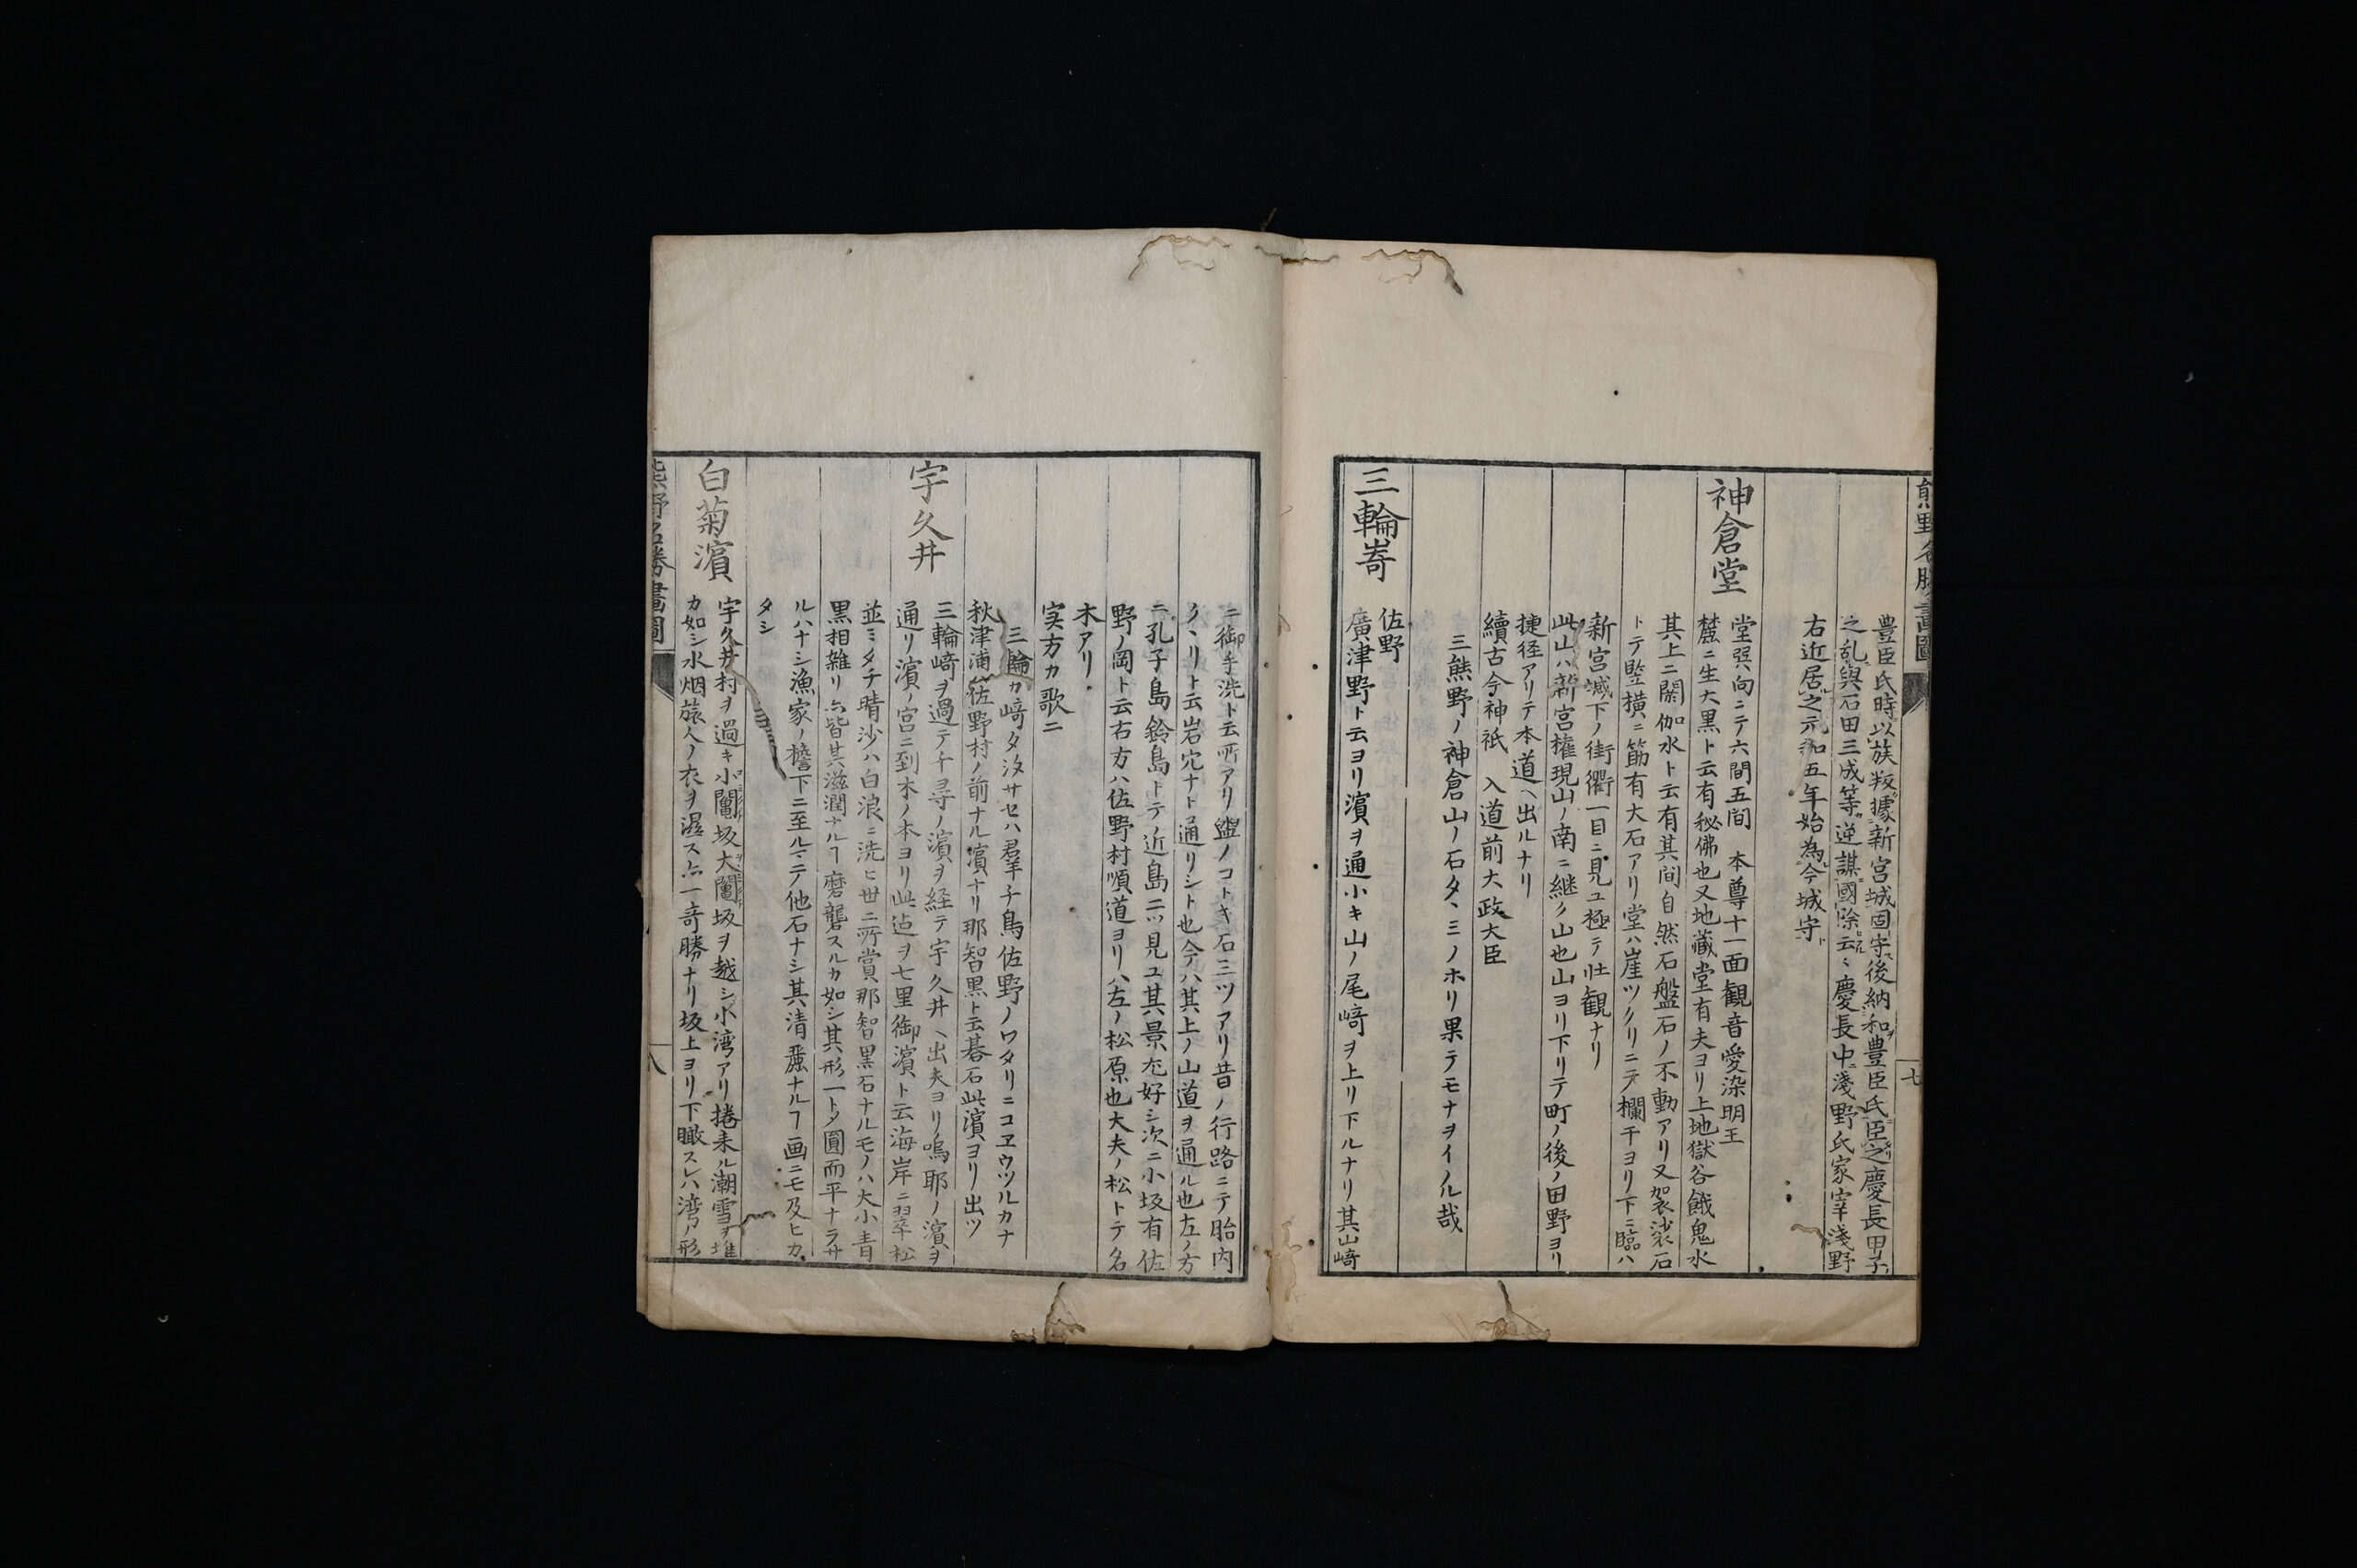 熊野名勝畫圖
七
豊臣氏時以族叛據新宮城固守後納和豊臣氏臣之慶長甲子
之乱與石田三成等逆謀國除云々慶長中淺野氏家宰淺野
右近居之元和五年始為今城守
神倉堂
堂巽向ニテ六間五間 本尊十一面観音愛染明王
麓ニ生大黒ト云有秘佛也又地藏堂有夫ヨリ上地獄谷餓鬼水
其上ニ閼伽水ト云有其間自然石盤石ノ不動アリ又袈裟石
トテ竪横ニ筋有大石アリ堂ハ崖ツクリニテ欄干ヨリ下ニ臨ハ
新宮城下ノ街衢一目ニ見ユ極テ壮観ナリ
此山ハ新宮権現山ノ南ニ継ク山也山ヨリ下リテ町ノ後ノ田野ヨリ
捷径アリテ本道ヘ出ルナリ
續古今神祇 入道前大政大臣
三熊野ノ神倉山ノ石タヽミノホリ果テモナヲイノル哉
三輪嵜
佐野
廣津野ト云ヨリ濱ヲ通小キ山ノ尾﨑ヲ上リ下ルナリ其山﨑
ニ御手洗ト云所アリ盥ノコトキ石三ツアリ昔ノ行路ニテ胎内
クヽリト云岩穴ナト通リシト也今ハ其上ノ山道ヲ通ル也左ノ方
ニ孔子島鈴島トテ近島二ツ見ユ其景尤好シ次ニ小坂有佐
野ノ岡ト云右方ハ佐野村順道ヨリハ左ノ松原也大夫ノ松トテ名
木アリ
実方カ歌ニ
三輪カ﨑タ汐サセハ羣チ鳥佐野ノワタリニコヱウツルカナ
秋津浦佐野村ノ前ナル濱ナリ那智黒ト云碁石此濱ヨリ出ツ
宇久井
三輪﨑ヲ過テチヲ尋ノ濱ヲ経テ宇久井ヘ出夫ヨリ嗚耶ノ濱ヲ
通リ濱ノ宮ニ到木ノ本ヨリ此迠ヲ七里御濱ト云海岸ニ翠松
並ミタチ晴沙ハ白浪ニ洗ヒ世ニ所賞那智黒石ナルモノハ大小青
黒相雑リ㒰皆其滋潤ナルヿ磨礱スルカ如シ其形一トメ圓而平ナラサ
ルハナシ漁家ノ檐下ニ至ルニテ他石ナシ其清麗ナルヿ画ニモ及ヒカ
タシ
白菊濱
宇久井村ヲ過キ小闇坂大闇坂ヲ越シ小湾アリ捲来ル潮雪ヲ堆
カ如シ水烟旅人ノ衣ヲ湿ス㒰一奇勝ナリ坂上ヨリ下瞰スレハ湾ノ形
熊野名勝畫圖
八